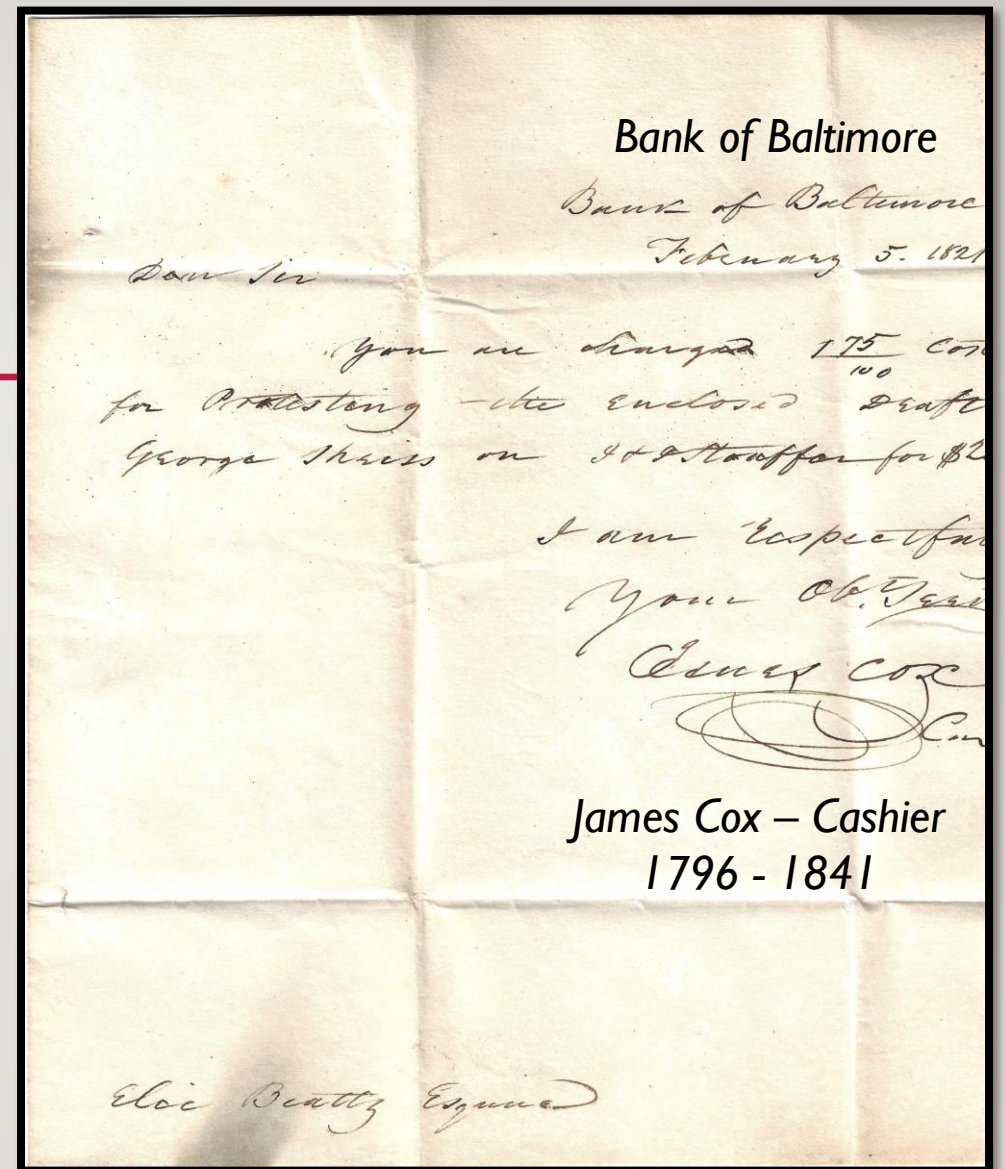 Bank of Baltimore
Bank of Baltimore
February 5. 1821
Dear Sir
You are charged 1 75/100
for Protesting the enclosed Draft
George on Stouffer for $2
I am
Your Obt
James Cox
James Cox – Cashier
1796 - 1841
Elie Beatty Esquire